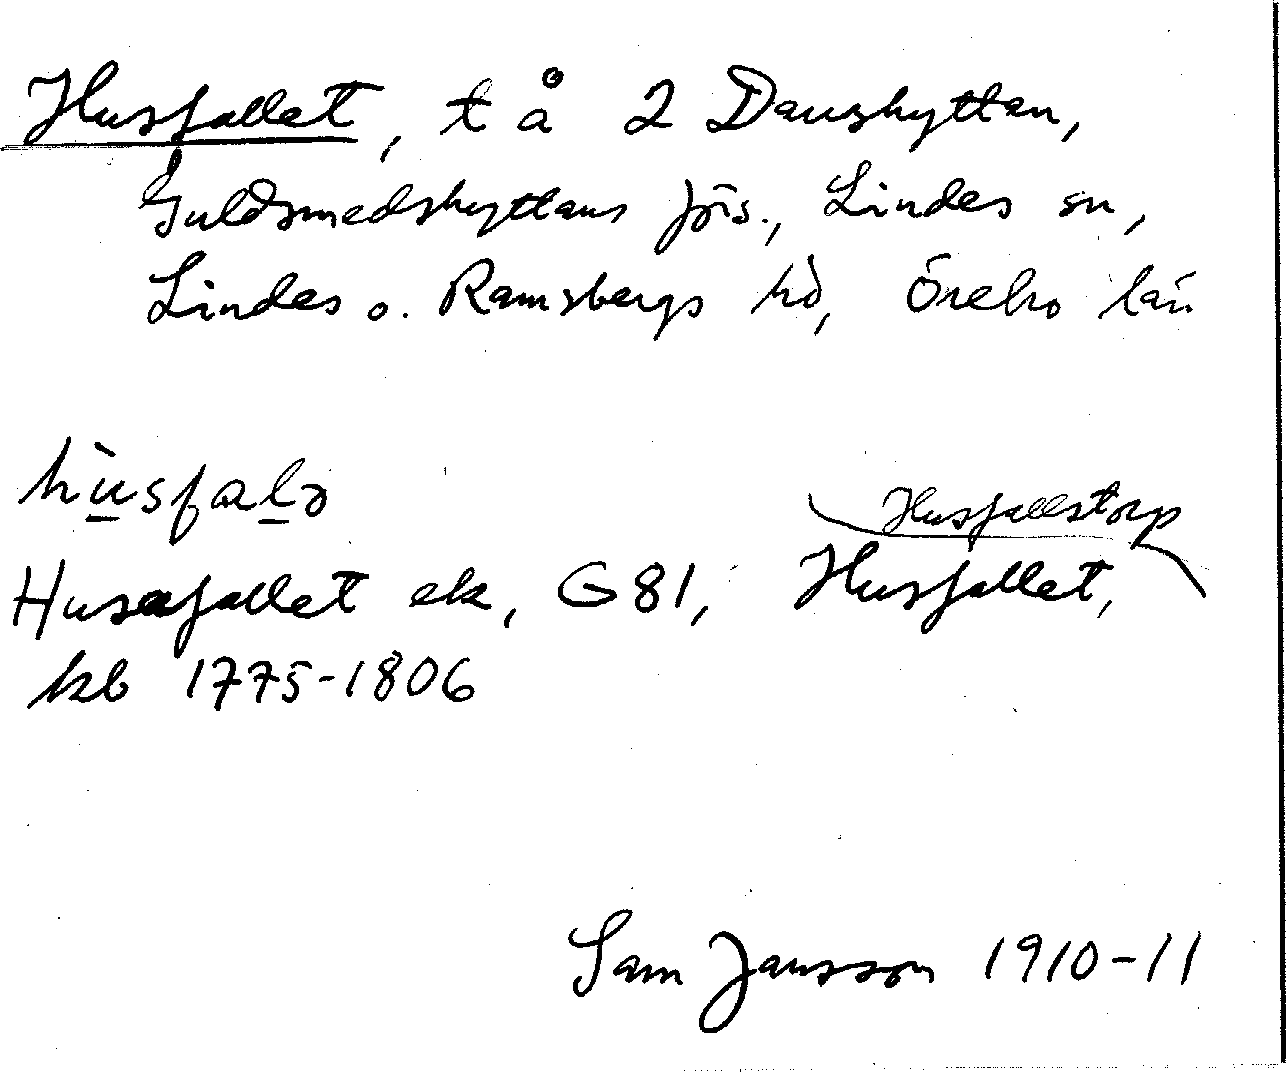 Husfallet, t å 2 Danshyttan,
Guldsmedshyttans förs., Lindes sn,
Lindes o. Ramsbergs hd, Örebro län
hùsfalə
Husfallstorp
Husafallet ek, G 81, Husfallet,
kb 1775-1806
Sam Jansson 1910-11